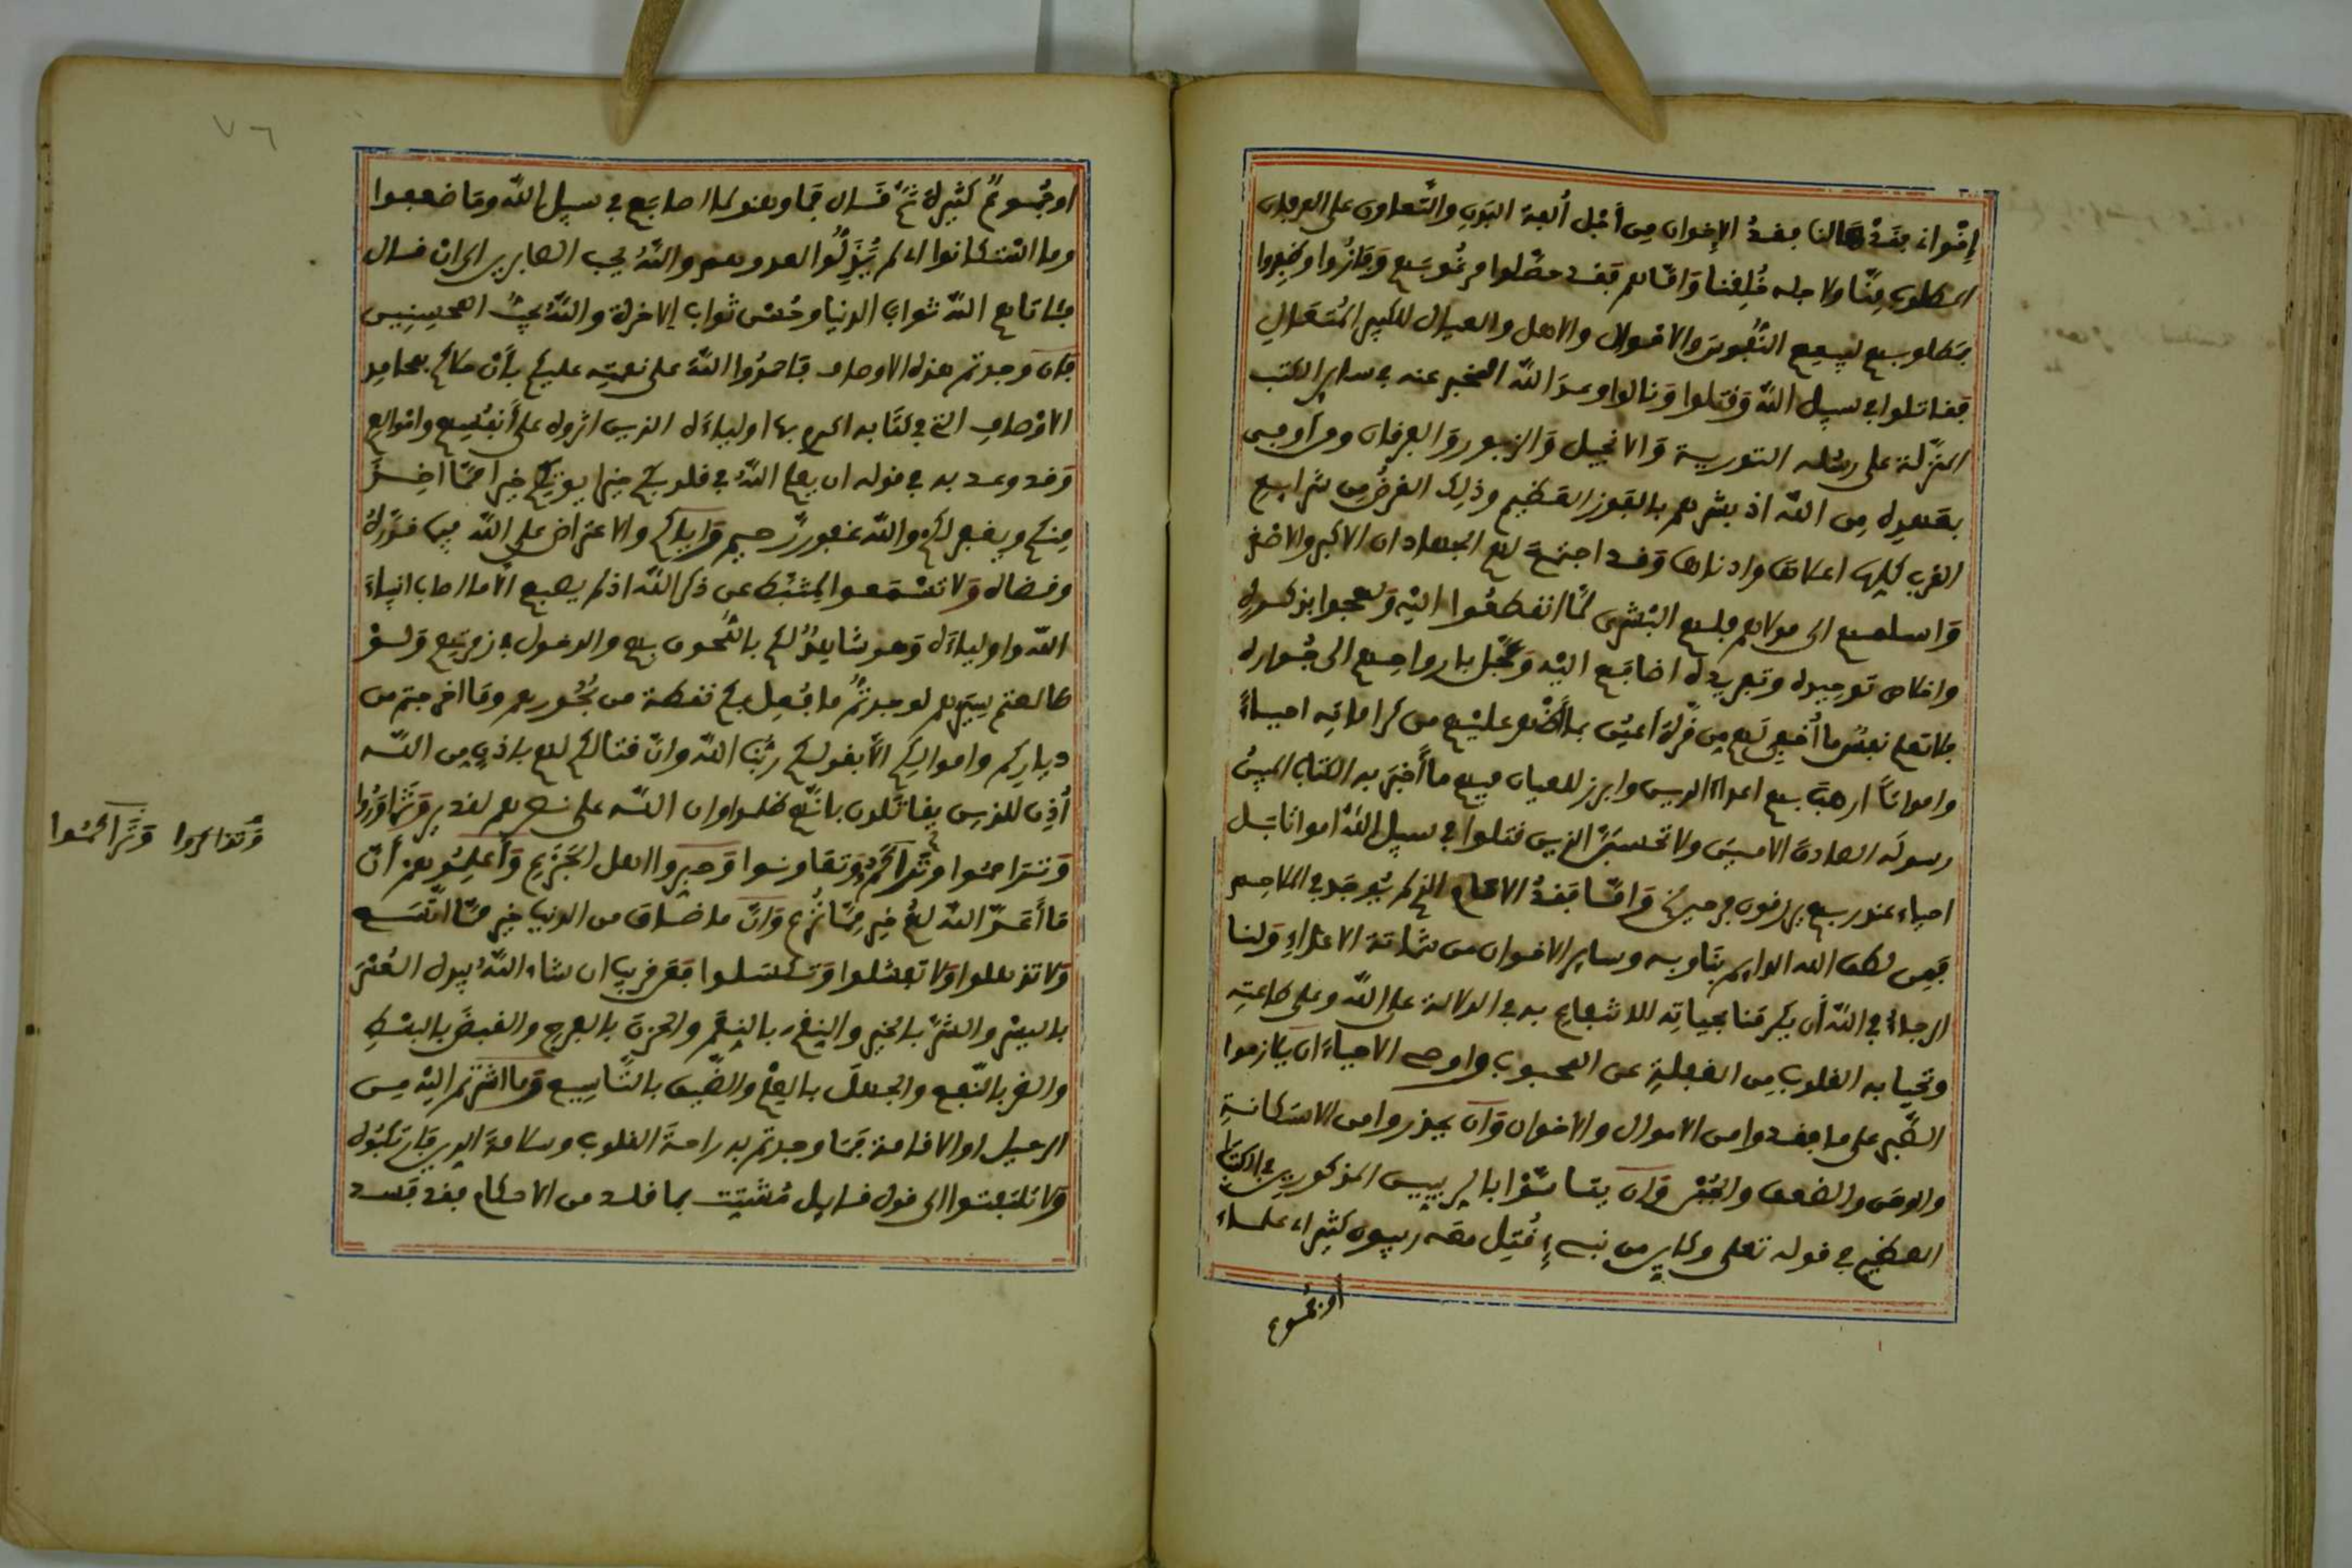 إخوانه بفقد هالنا بفقد الإخوان من أجل ألفة البون والتعاون على العرفان
المطلوب منا ولاجله خلقنا وأما هم فقد حصلوا مرغوبهم وفازوا وظفروا
بمطلوبهم لبيعهم النفوس والاموال والاهل والعيال للكبير المتعال
فقاتلوا في سبيل الله وقتلوا ونالوا وعد الله المخبر عنه في ساير الكتب
المنزلة على رسله التورية والانجيل والزبور والفرقان ومن أوفى
بعهده من الله اذ بشرهم بالفوز العظيم وذلك الغرض من شرايع
القرب كلها اعلاها وادناها وقد اجتمع لهم الجهادان الاكبر والاصغر
واسلمهم الى مولاهم فلهم البشرى لما انقطعوا اليه ولهجوا بذكره
واخلاص توحيده وتفريده اضافهم اليه وعجل بارواحهم الى جواره
فلا تعلم نفس ما أخفي لهم من قرة أعين بما أظهر عليهم من كراماته احياء
وامواتا ارهب بهم اعداء الدين وابرز للعيان فيهم ما أخبر به الكتاب المبين
رسوله الصادق الامين ولا تحسبن الذين قتلوا في سبيل الله امواتا بل
احياء عند ربهم يرزقون فرحين الخ وأما بقد الامام الذي لم يوجد في الملاحم
فمن لطف الله الدايم بنا وبه وساير الاخوان من شماتة الاعداء ولنا
الرجاء في الله أن يكرمنا بحياته للانتفاع به في الدلالة على الله وعلى طاعته
وتحيا به القلوب من الغفلة عن المحبوب واوصي الاحياء ان يلازموا
الصبر على ما فقدوا من الاموال والاخوان وان يحذروا من الاستكانة
والوهن والضعف والعجز وان يتأسوا بالربيين المذكورين في الكتاب
العظيم في قوله تعلى وكاين من نبيء قتل معه ربيون كثير اء علماء
أو جموع
٧٦
او جموع كثيرة ثم قال فما وهنوا لما اصابهم في سبيل الله وما ضعفوا
وما استكانوا اء لم يذلوا لعدوهم والله يحب الصابرين الى ان قال
فئاتاهم الله ثواب الدنيا وحسن ثواب الاخرة والله يحب المحسنين
فإن وجدتم هذه الاوصاف فاحمدوا الله على نعمته عليكم بأن حلاكم بمحامد
الاوصاف التي في كتابه اكرم بها اولياءه الذين اثروه على أنفسهم واموالهم
وقد وعد به في قوله ان يعلم الله في قلوبكم خيرا يوتكم خيرا مما اخذ
منكم ويغفر لكم والله غفور رحيم وإياكم والاعتراض على الله فيما قدره
وقضاه ولا تسمعوا لمثبط عن ذكر الله اذ لم يصبهم الا ما اصاب انبياء
الله واولياءه وهو شاهد لكم باللحوق بهم والدخول في زمرتهم ولو
طالعتم سيرهم لوجدتم ما فعل بكم نقطة من بحورهم وما اخرجتم من
دياركم واموالكم الا بقولكم ربنا الله وان قتالكم لهم باذن من الله
أذن للذين يقاتلون بأنهم ظلموا وان الله على نصرهم لقدير وتشاوروا
وتراحموا وتذاكروا وتعاونوا وصبروا اهل الجزع وأعلموهم أن
ما أعد الله لهم خير مما نزع وان ما ضاق من الدنيا خير مما اتسع
ولا تذهلوا ولا تفشلوا وتكسلوا فعن قريب ان شاء الله يبدل العسر
باليسر والشر بالخير والنقم بالنعم والحزن بالفرح والقبض بالبسط
والضر بالنفع والجهل بالعلم والضيق بالتاسيع وما اشرتم اليه من
الرحيل او الاقامة فما وجدتم به راحة القلوب وسلامة الدين فارتكبوه
ولا تلتفتوا الى قول قايل مشتت بما قلد من الاحكام فقد فسد
وتذاكروا وتراحموا